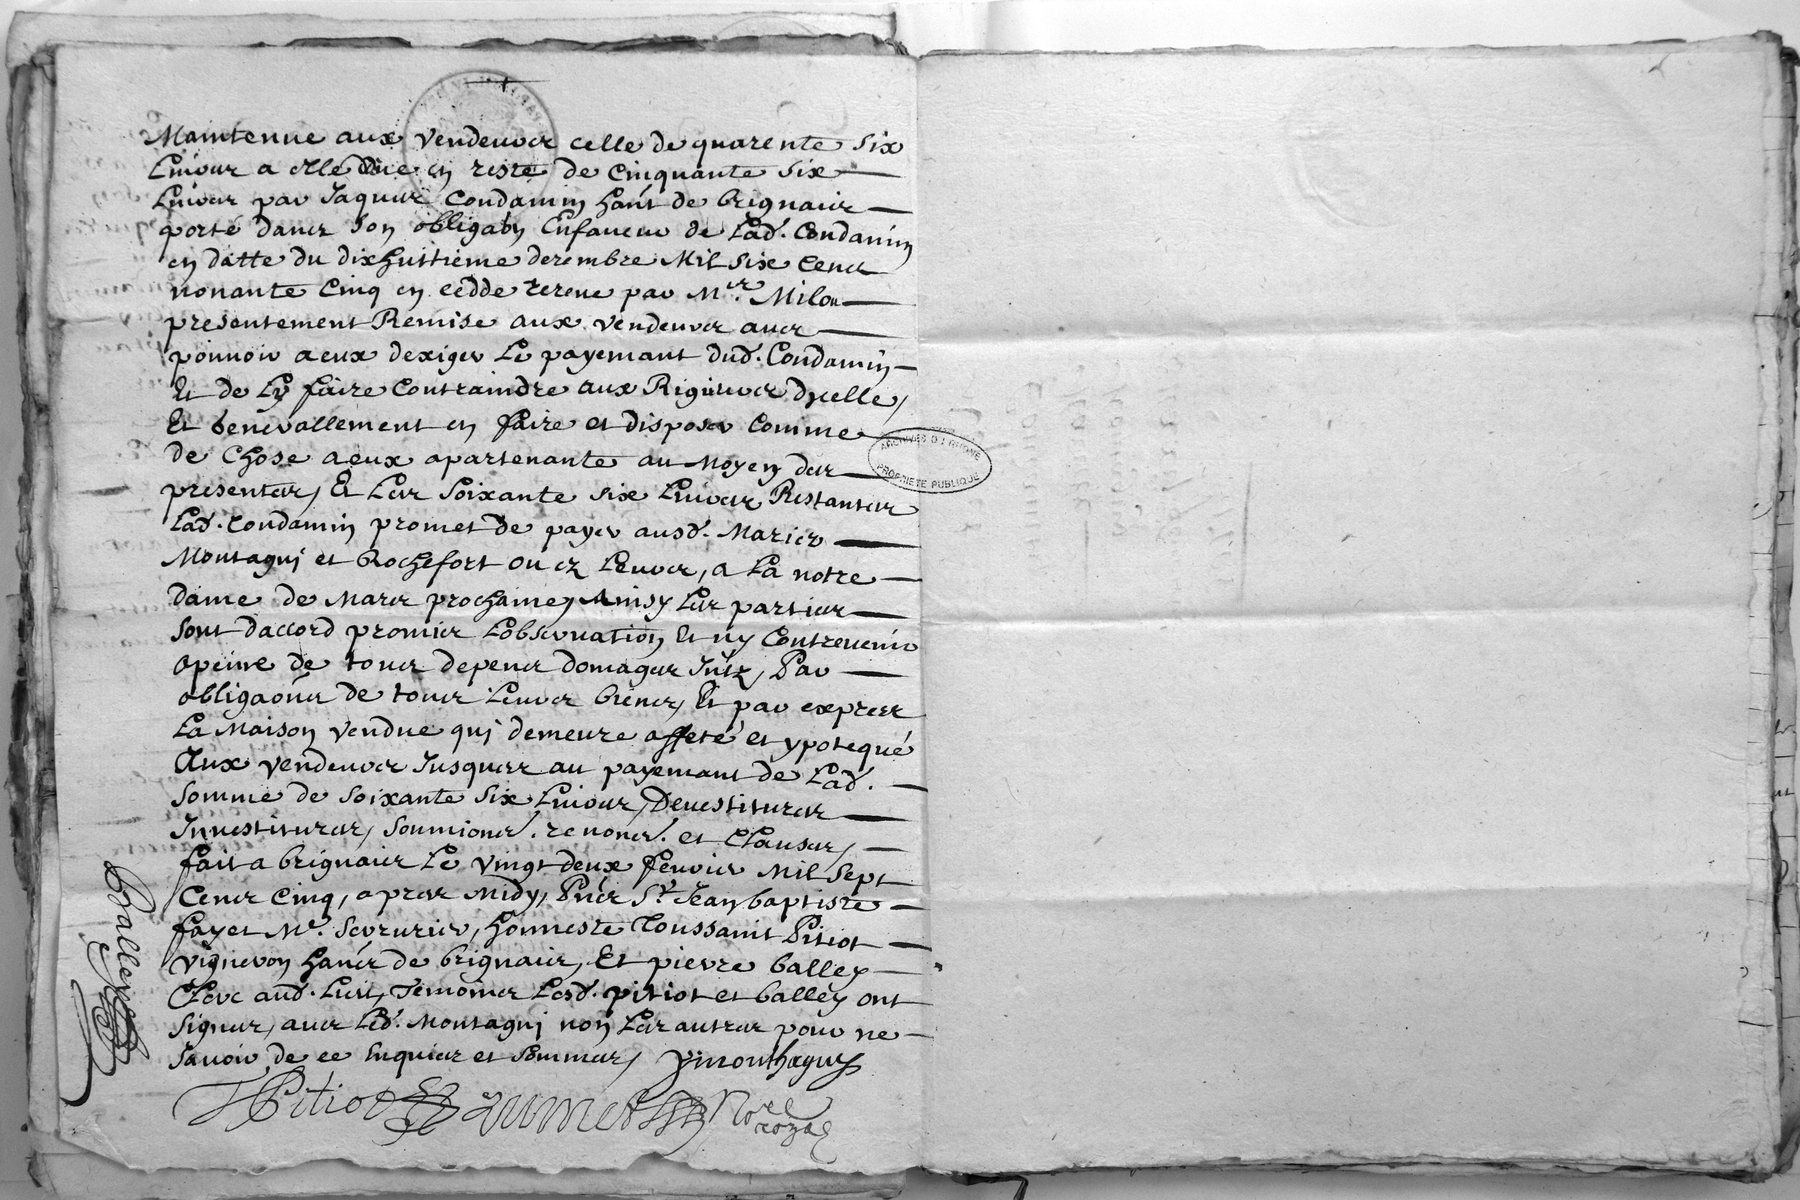 Maintenue aux vendeurs celle de quarente six
Livres a elle düe en reste de Cinquante six
Livres par Jaques Condamin hãnt de brignais
porté dans son obligaõn Enfaveur de Lad. Condamin
en datte du dixhuitieme decembre Mil six Cens
nonante Cinq en cedde receue par Me. Milon
presentement Remise aux vendeurs avec
pouvoir a eux dexiger Le payemant dud. Condamin
Et de Ly faire Contraindre aux Rigueurs dycelle,
Et benevallement en faire et disposer Comme
de Chose a eux apartenante au Moyen des
presentes, Et Les soixante six Livres Restantes
Lad. Condamin promet de payer ausd. Mariés
Montagni et Rochefort ou es Leurs, a La notre
dame de Mars prochaine, Ainsy Les parties
sont daccord promis Lobservation Et ny Contrevenir
apeine de tous depens domages Intz, Par
obligaõns de tous Leurs biens, Et par expres
La Maison vendue qui demeure affeté et ypotequé
Aux vendeurs Jusques au payemant de Lad.
somme de soixante six Livres, Devestitures
Investitures, soumions. renons. et Clauses,
fait a brignais Le vingt deux fevrier Mil sept
Cens Cinq, apres Midy, Pñs Sr. Jean baptiste
fayet Me. serrurier, honneste Toussaint Pitiot
vigneron hãns de brignais, Et pierre balley
Clerc aud. Lieu, Temoins Lesd. pitiot et balley ont
signes, avec Led. Montagni non Les autres pour ne
savoir de ce Enquis et sommes, ymonthagny
Balley
TPitiot